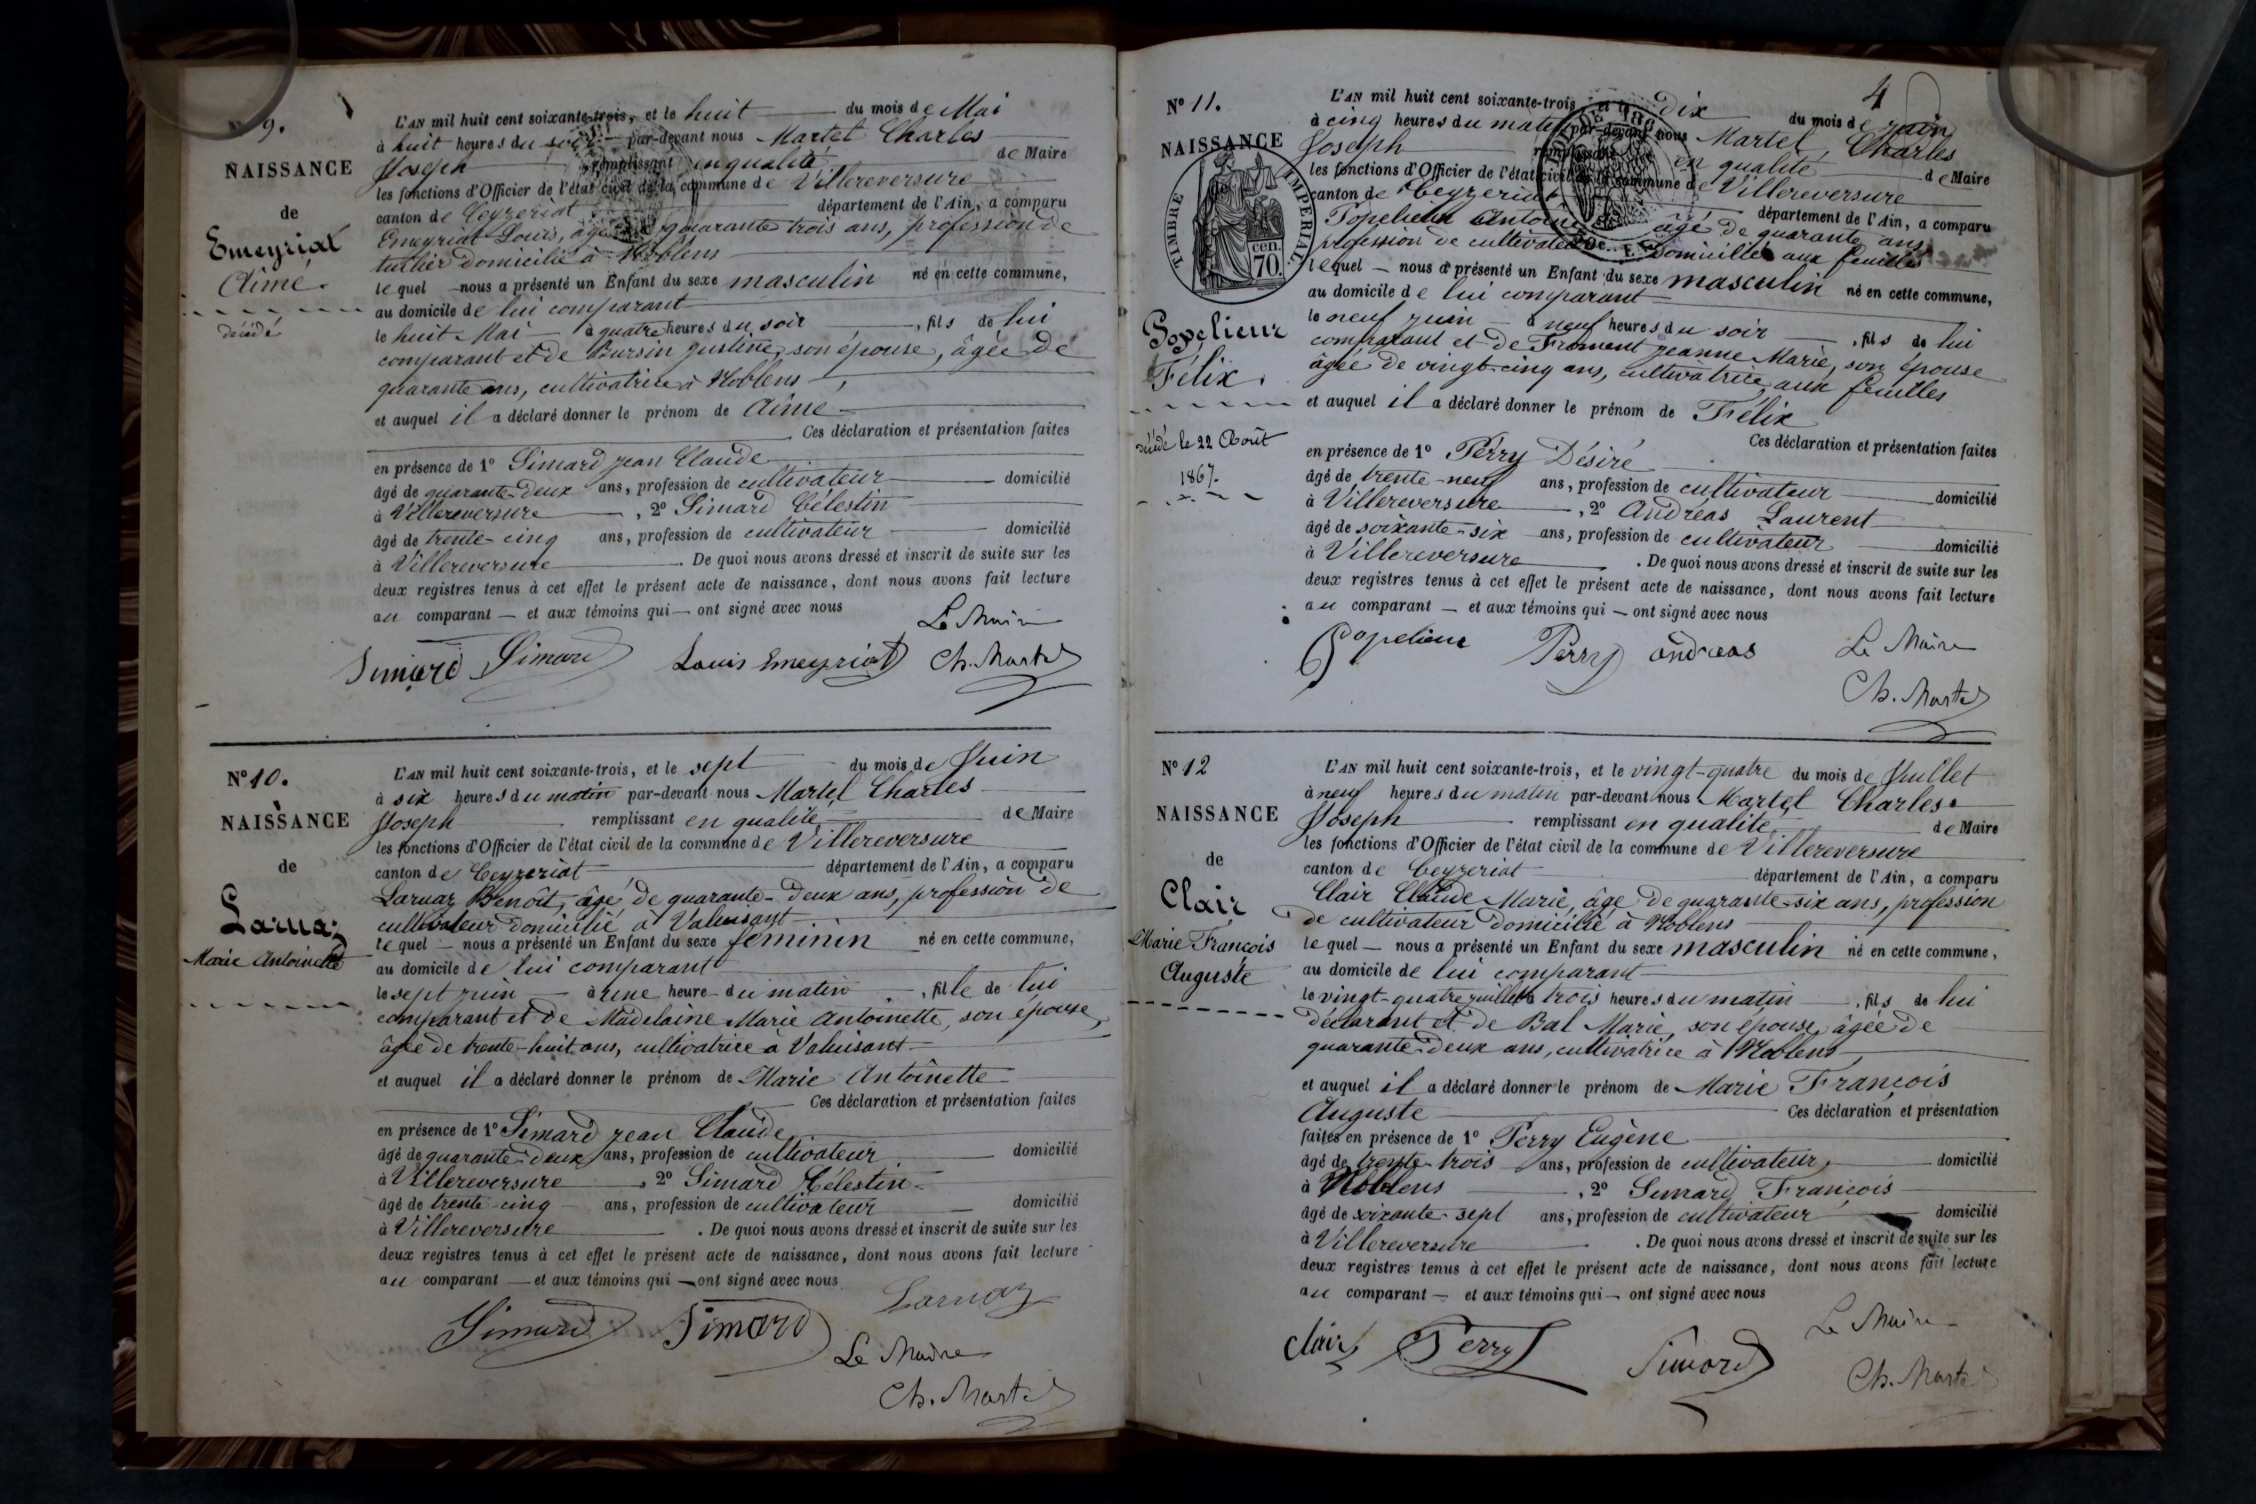 N° 9.
NAISSANCE
de
Emeyriat
Aimé.
décédé
L'AN mil huit cent soixante-trois, et le huit du mois de Mai
à huit heures du soir par-devant nous Martel Charles
Joseph remplissant en qualité de Maire
les fonctions d'Officier de l'état civil de la commune de Villereversure
canton de Ceyzeriat département de l'Ain, a comparu
Emeyriat Louis, âgé de quarante trois ans, profession de
tuilier domicilié à Noblens
lequel nous a présenté un Enfant du sexe masculin né en cette commune,
au domicile de lui comparant
le huit Mai à quatre heures du soir, fils de lui
comparant et de Bursin Justine, son épouse, âgée de
quarante ans, cultivatrice à Noblens
et auquel il a déclaré donner le prénom de Aimé
Ces déclaration et présentation faites
en présence de 1° Simard jean Claude
âgé de quarante-deux ans, profession de cultivateur domicilié
à Villereversure, 2° Simard Célestin
âgé de trente-cinq ans, profession de cultivateur domicilié
à Villereversure. De quoi nous avons dressé et inscrit de suite sur les
deux registres tenus à cet effet le présent acte de naissance, dont nous avons fait lecture
au comparant — et aux témoins qui — ont signé avec nous
Le Maire
Simard Simard Louis Emeyriat Ch. Martel
N° 10.
NAISSANCE
de
Larnaz
Marie Antoinette
L'AN mil huit cent soixante-trois, et le sept du mois de Juin
à six heures du matin par-devant nous Martel Charles
Joseph remplissant en qualité de Maire
les fonctions d'Officier de l'état civil de la commune de Villereversure
canton de Ceyzeriat département de l'Ain, a comparu
Larnaz Benoît, âgé de quarante-deux ans, profession de
cultivateur domicilié à Valuisant
lequel — nous a présenté un Enfant du sexe féminin né en cette commune,
au domicile de lui comparant
le sept juin à une heure du matin, fille de lui
comparant et de Madelaine Marie Antoinette, son épouse,
âgée de trente-huit ans, cultivatrice à Valuisant
et auquel il a déclaré donner le prénom de Marie Antoinette
Ces déclaration et présentation faites
en présence de 1° Simard jean Claude
âgé de quarante-deux ans, profession de cultivateur domicilié
à Villereversure, 2° Simard Célestin
âgé de trente-cinq ans, profession de cultivateur domicilié
à Villereversure. De quoi nous avons dressé et inscrit de suite sur les
deux registres tenus à cet effet le présent acte de naissance, dont nous avons fait lecture
au comparant — et aux témoins qui — ont signé avec nous
Larnaz
Simard Simard
Le Maire
Ch. Martel
4
N° 11.
NAISSANCE
de
TIMBRE IMPERIAL
70 cen.
Popelieur
Félix.
décédé le 22 Août
1867.
L'AN mil huit cent soixante-trois, et le dix du mois de juin
à cinq heures du matin par-devant nous Martel, Charles
Joseph remplissant en qualité de Maire
les fonctions d'Officier de l'état civil de la commune de Villereversure
canton de Ceyzeriat département de l'Ain, a comparu
Popelieur Antoine âgé de quarante ans
profession de cultivateur domicilié aux feuilles
lequel — nous a présenté un Enfant du sexe masculin né en cette commune,
au domicile de lui comparant
le neuf juin à neuf heures du soir, fils de lui
comparant et de Froment Jeanne Marie, son épouse
âgée de vingt-cinq ans, cultivatrice aux feuilles
et auquel il a déclaré donner le prénom de Félix
Ces déclaration et présentation faites
en présence de 1° Perry Désiré
âgé de trente-neuf ans, profession de cultivateur domicilié
à Villereversure, 2° Andréas Laurent
âgé de soixante-six ans, profession de cultivateur domicilié
à Villereversure. De quoi nous avons dressé et inscrit de suite sur les
deux registres tenus à cet effet le présent acte de naissance, dont nous avons fait lecture
au comparant — et aux témoins qui — ont signé avec nous
Popelieur Perry andreas Le Maire
Ch. Martel
N° 12
NAISSANCE
de
Clair
Marie François
Auguste
L'AN mil huit cent soixante-trois, et le vingt-quatre du mois de Juillet
à neuf heures du matin par-devant nous Martel Charles
Joseph remplissant en qualité de Maire
les fonctions d'Officier de l'état civil de la commune de Villereversure
canton de Ceyzeriat département de l'Ain, a comparu
Clair Claude Marie, âgé de quarante-six ans, profession
de cultivateur domicilié à Noblens
lequel — nous a présenté un Enfant du sexe masculin né en cette commune,
au domicile de lui comparant
le vingt-quatre juillet à trois heures du matin, fils de lui
déclarant et de Bal Marie, son épouse, âgée de
quarante-deux ans, cultivatrice à Noblens
et auquel il a déclaré donner le prénom de Marie François
Auguste Ces déclaration et présentation
faites en présence de 1° Perry Eugène
âgé de trente-trois ans, profession de cultivateur, domicilié
à Noblens, 2° Simard François
âgé de soixante-sept ans, profession de cultivateur domicilié
à Villereversure. De quoi nous avons dressé et inscrit de suite sur les
deux registres tenus à cet effet le présent acte de naissance, dont nous avons fait lecture
au comparant — et aux témoins qui — ont signé avec nous
Le Maire
Clair Perry Simard Ch. Martel